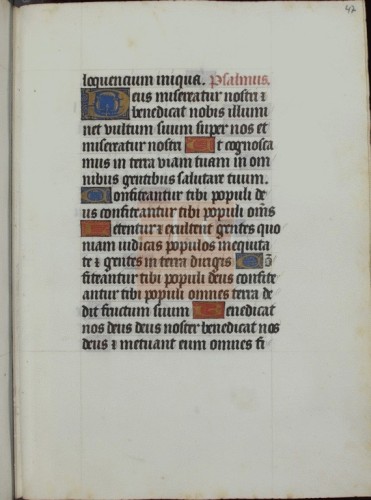 47
loquencium iniqua. Psalmus.
Deus misereatur nostri ⁊
benedicat nobis illumi
net vultum suum super nos et
misereatur nostri Et cognosca
mus in terra viam tuam in om
nibus gentibus salutare tuum.
Confiteantur tibi populi de
us confiteantur tibi populi om̄s
Letentur ⁊ exultent gentes quo
niam iudicas populos in equita
te ⁊ gentes in terra dirigis Cō
fiteantur tibi populi deus confite
antur tibi populi omnes terra de
dit fructum suum Benedicat
nos deus deus noster benedicat nos
deus ⁊ metuant eum omnes fi